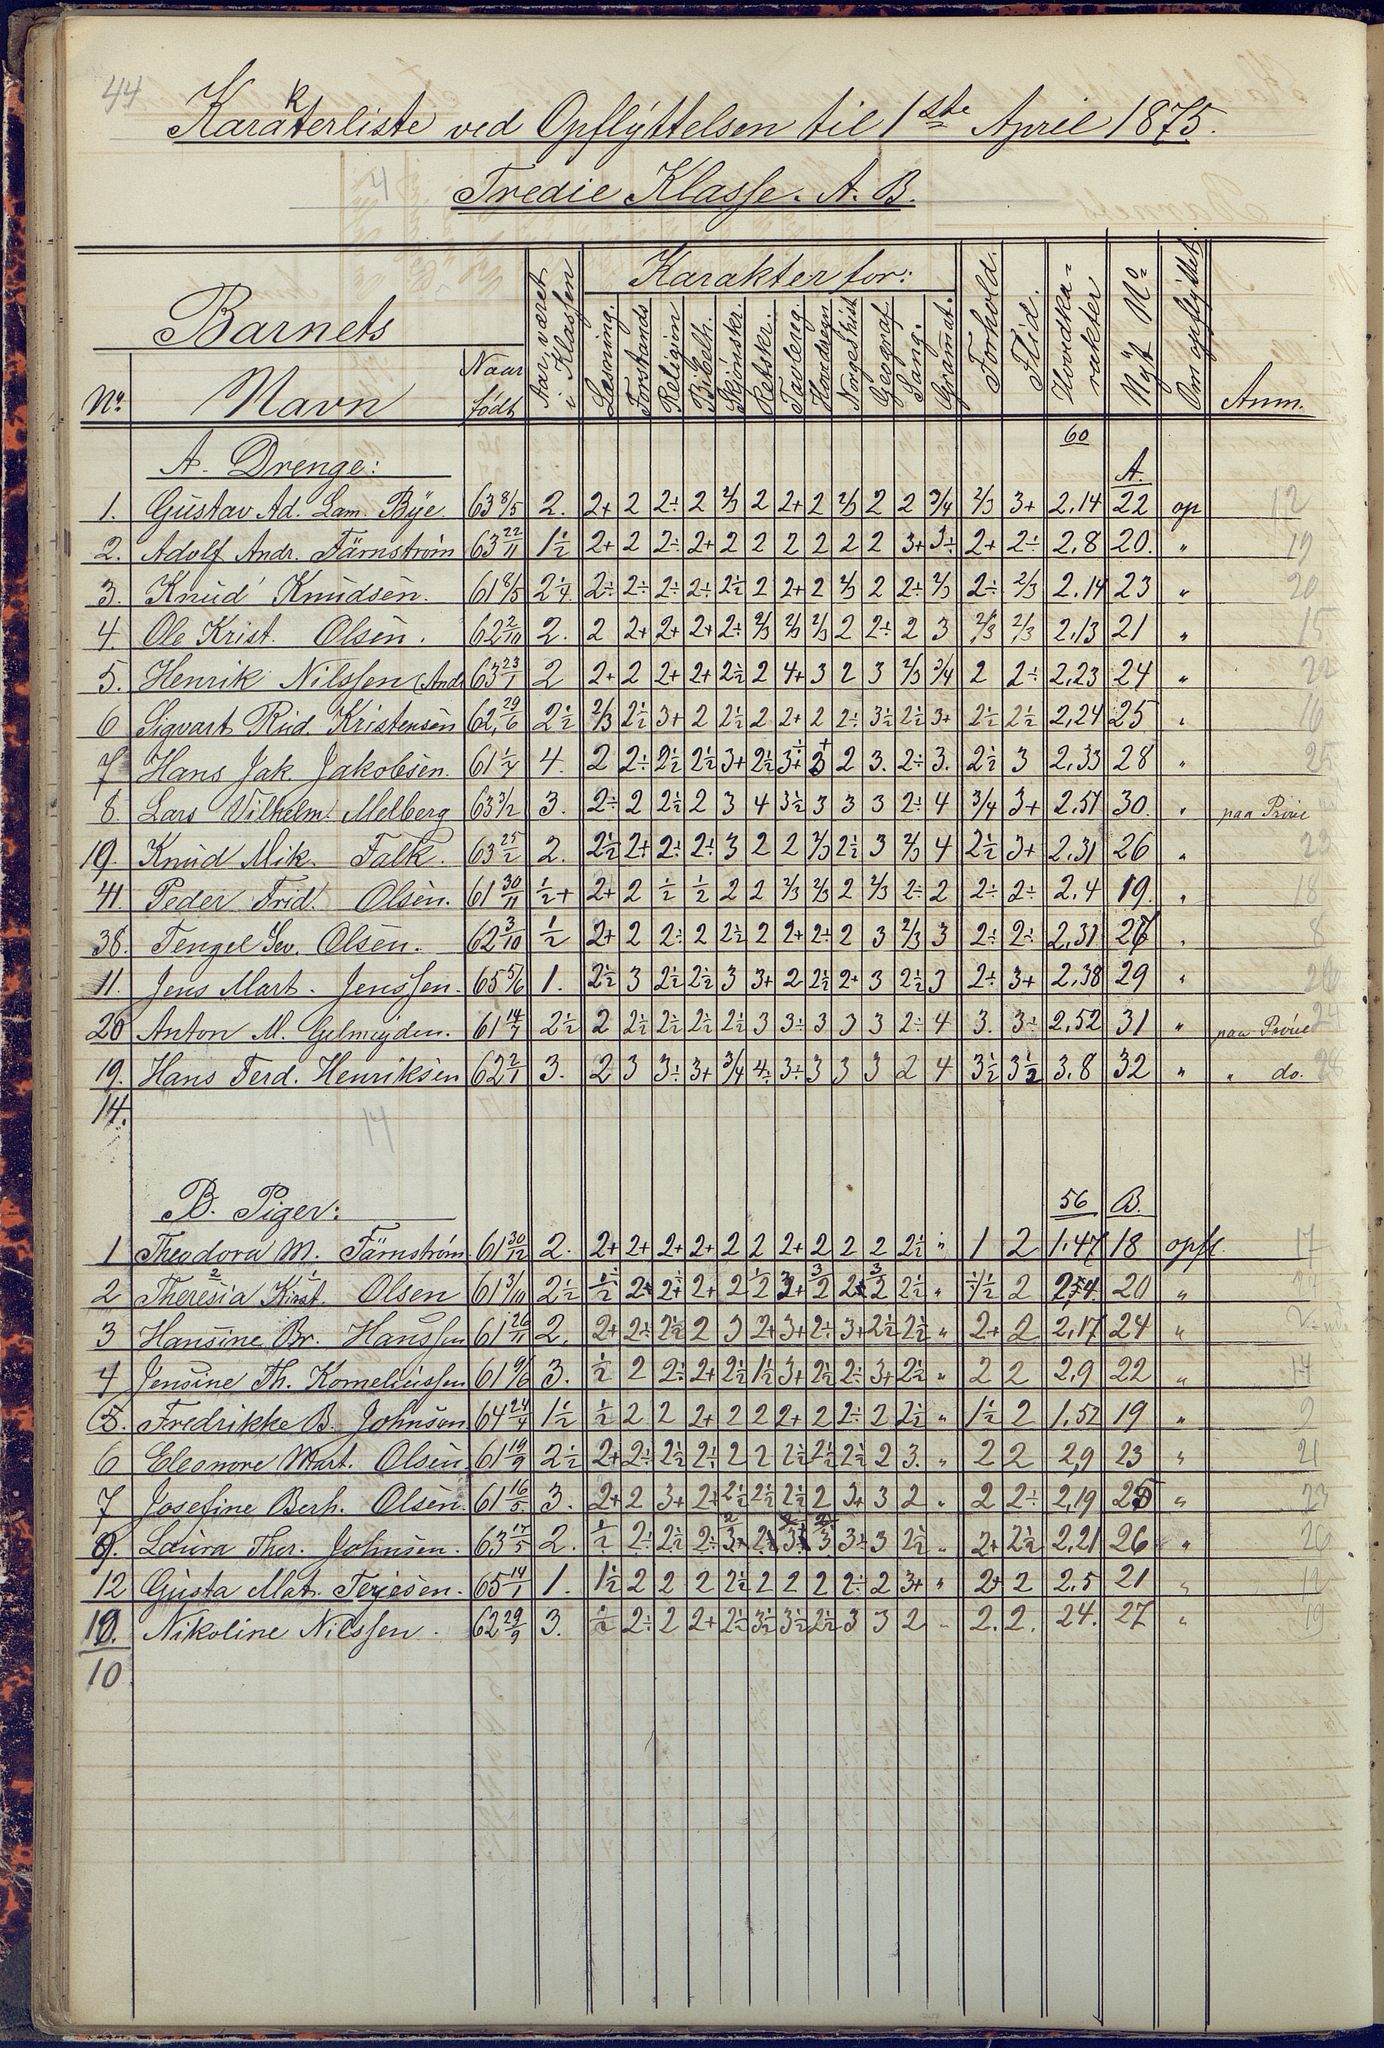 44
Karakterliste ved Opflyttelsen til 1ste April 1875.
Tredie Klasse. A. B.
4
Barnets
No. Navn Naar født Aar været i Klassen Karakter for: Læsning. Forstands Religion Bibelh. Skjønskr. Retskr. Tavlereg. Hovedregn. Norges Hist Geograf Sang. Gramat. Forhold. Flid. Hovedkarakter Nyt No Om opflyttet Anm.
60
A. Drenge: A.
1. Gustav Ad. Lam. Bye. 63 8/5 2. 2+ 2 2÷ 2 2/3 2 2+ 2 2/3 2 2 3/4 2/3 3+ 2,14 22 op 12
2. Adolf Andr. Färnstrøm 63 22/11 1½ 2+ 2 2÷ 2+ 2 2 2 2 2 2 3+ 3÷ 2+ 2÷ 2,8 20. " 19
3. Knud Knudsen. 61 8/5 2¼ 2÷ 2÷ 2÷ 2÷ 2½ 2 2+ 2 2/3 2 2÷ 2/3 2÷ 2/3 2,14 23 " 20
4. Ole Krist. Olsen. 62 2/10 2. 2 2+ 2+ 2+ 2÷ 2/3 2/3 2/3 2 2÷ 2 3 2/3 2/3 2,13 21 " 15
5. Henrik Nilssen (Andr 63 23/1 2 2+ 2 2+ 2+ 2½ 2 4+ 3 2 3 2/3 3/4 2 2÷ 2,23 24 " 22
6 Sigvart Rud. Kristensen 62, 29/6 2½ 2/3 2½ 3+ 2 2½ 2 2+ 2 2÷ 3½ 2½ 3+ 2½ 2½ 2,24 25 " 16
7 Hans Jak Jakobsen. 61 1/7 4. 2 2÷ 2½ 2½ 3+ 2½ 3+ 3 2 3. 2÷ 3. 2½ 3 2,33 28 " 25
8. Lars Vilhelm. Melberg 63 3/2 3. 2÷ 2 2½ 2 3 4 3½ 3 3 3 2÷ 4 3/4 3+ 2,57 30. " paa Prøve
19. Knud Mik. Falk. 63 25/2 2. 2½ 2+ 2÷ 2÷ 3 2 2 2/3 2½ 3 2/3 4 2½ 3+ 2,31 26 " 23
41. Peder Frid. Olsen. 61 30/11 ½+ 2+ 2 ½ ½ 2 2 2/3 2/3 2 2/3 2÷ 2 2÷ 2÷ 2,4 19. " 18
38. Tengel Sev. Olsen. 62 3/10 ½ 2+ 2 2÷ 2 2½ 2 2+ 2÷ 2 3 2/3 3 2÷ 2÷ 2,31 27 " 8
11. Jens Mart. Jenssen. 65 5/6 1. 2½ 3 2½ 2½ 3 3+ 2 2½ 2+ 3 2½ 3 2+ 3+ 2,38 29 " 26
20 Anton M. Gelmeyden. 61 14/7 2½ 2 2½ 2½ 2½ 2½ 3 3÷ 3 3 3 2÷ 4 3. 3÷ 2,52 31 " paa Prøve 24
19. Hans Ferd. Henriksen 62 2/1 3. 2 3 3÷ 3+ 3/4 4÷ 3÷ 3 3 3 2 4 3½ 3½ 3.8 32 " " do. 28
14. 14
56 B.
B. Piger:
1 Theodora M. Färnstrøm 61 30/12 2. 2+ 2+ 2+ 2+ 2 2 2+ 2 2 2 2½ " 1 2 1,47 18 opfl. 17
2 Theresia Krist. Olsen 61 3/10 2½ ½ 2+ 2+ 2+ 2 2 3+ 2 2 2 2½ " 1½ 2 2,4 20 "
3 Hansine Br. Hanssen 61 26/11 2. 2+ 2÷ 2½ 2 3 2+ 3+ 2÷ 3+ 2½ 2½ " 2+ 2 2,17 24 "
4 Jensine Th. Korneliussen 61 9/6 3. ½ 2 2÷ 2+ 2½ 1½ 3+ 2½ 2÷ 3+ 2½ " 2 2 2,9 22 " 14
5. Fredrikke B. Johnsen 64 24/4 1½ ½ 2 2 2+ 2 2 2+ 2 2÷ 2 2½ " 1½ 2 1,52 19 " 9
6 Eleonore Mart. Olsen 61 19/9 2½ 2+ 2÷ 2½ 2÷ 2 2 2½ 2½ 2½ 2 3. " 2 2 2,9 23 " 21
7 Josefine Berh. Olsen. 61 16/5 3. 2+ 2 3+ 2+ 2½ 2½ 2½ 2 3+ 3 2 " 2 2÷ 2,19 25 " 23
9. Laura Ther. Johnsen. 63 17/5 2. ½ 2÷ 2½ 2÷ 3+ 2 3 3 3÷ 3 2½ " 2+ 2½ 2,21 26 " 26
12 Gusta Mat. Terjesen. 65 14/1 1. 1½ 2 2 2 2½ 2 2 2 2÷ 2 3+ " 2+ 2 2,5 21 " 12
10. Nikoline Nilssen. 62 29/9 3. ½ 2÷ 2 2+ 2½ 3½ 3½ 2½ 3 3 2 " 2. 2. 24. 27 " 19
10